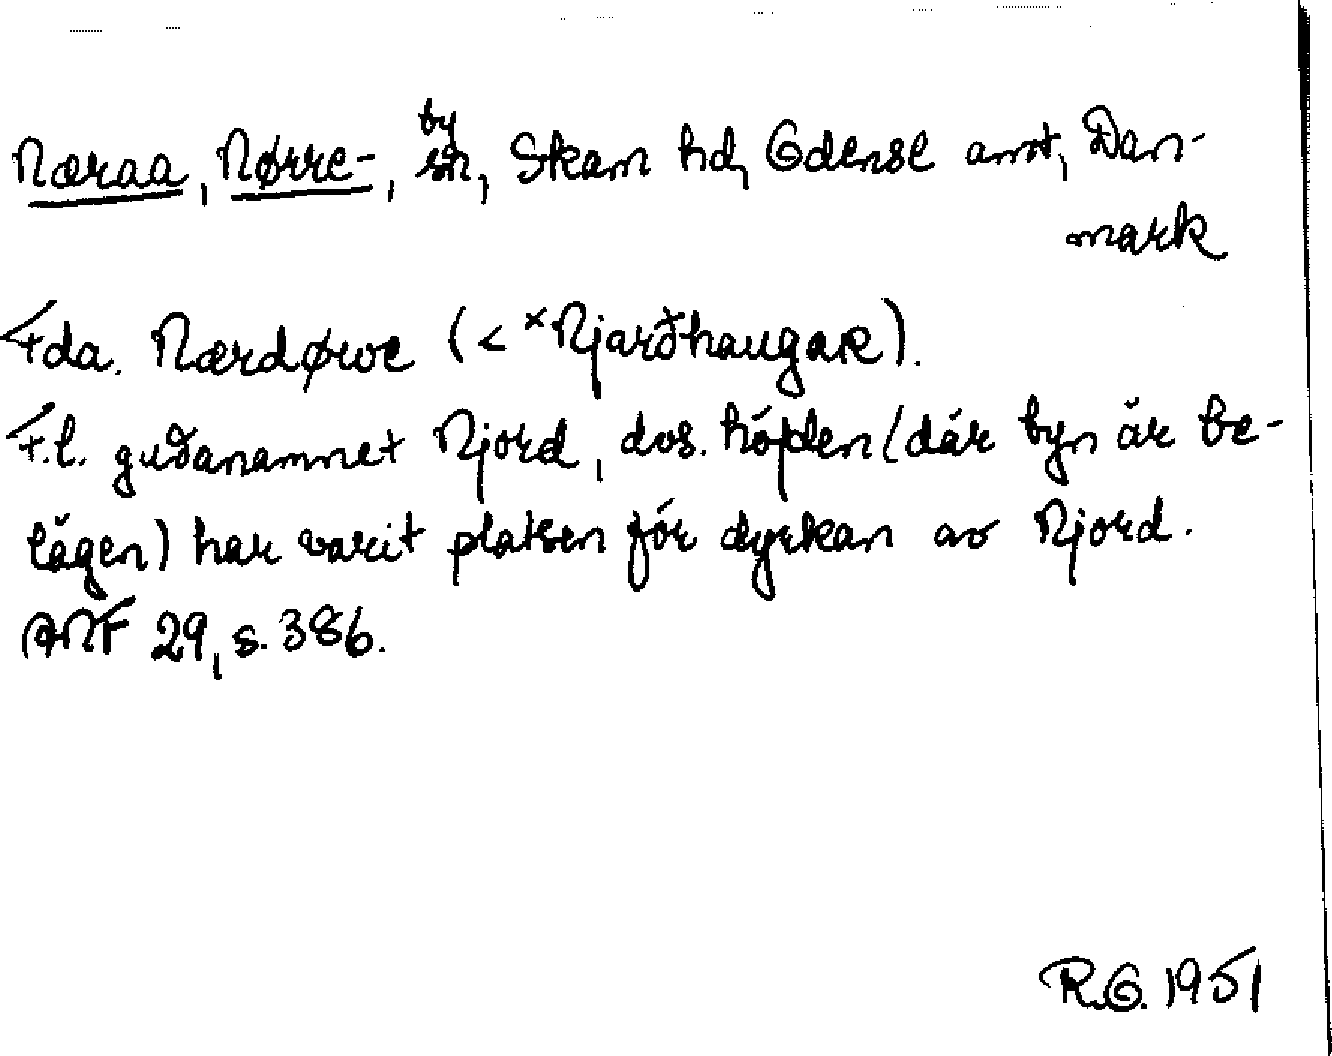 Næraa, Nørre-, by sn, Skam hd, Odense amt, Dan-
mark
Fda. Nærdøwe (< ×Njarðhaugar).
F.l. guðanamnet Njord, dvs. höjden (där byn är be-
lägen) har varit platsen för dyrkan av Njord.
ANF 29, s. 386.
R.O. 1951